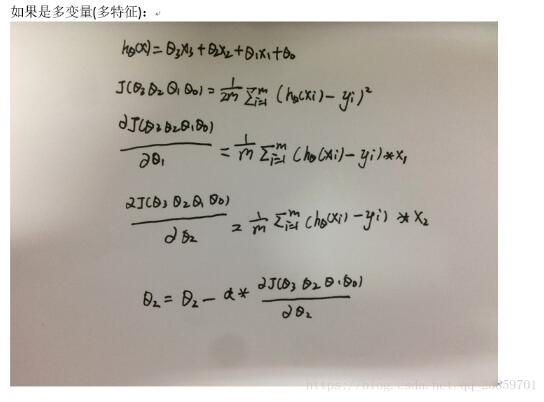 如果是多变量(多特征):
hθ(x) = θ3x3 + θ2x2 + θ1x1 + θ0
J(θ3 θ2 θ1 θ0) = 1/2m Σ_{i=1}^{m} (hθ(xi) - yi)²
∂J(θ3 θ2 θ1 θ0)/∂θ1 = 1/m Σ_{i=1}^{m} (hθ(xi) - yi) * x1
∂J(θ3 θ2 θ1 θ0)/∂θ2 = 1/m Σ_{i=1}^{m} (hθ(xi) - yi) * x2
θ2 = θ2 - α * ∂J(θ3 θ2 θ1 θ0)/∂θ2